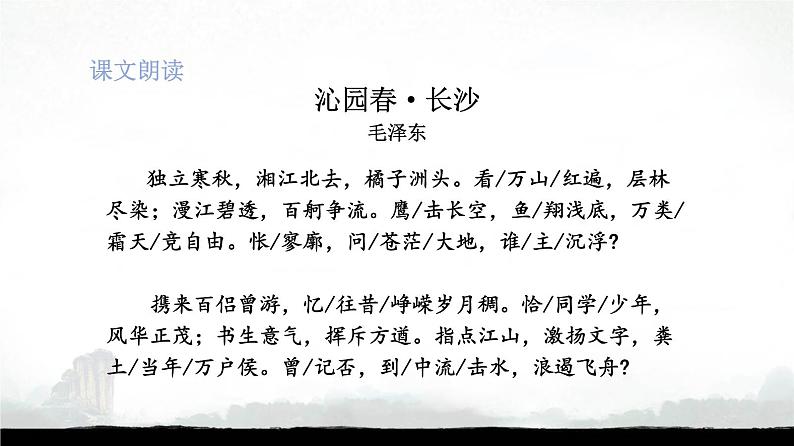 课文朗读
沁园春·长沙
毛泽东
独立寒秋，湘江北去，橘子洲头。看/万山/红遍，层林
尽染；漫江碧透，百舸争流。鹰/击长空，鱼/翔浅底，万类/
霜天/竞自由。怅/寥廓，问/苍茫/大地，谁/主/沉浮?
携来百侣曾游，忆/往昔/峥嵘岁月稠。恰/同学/少年，
风华正茂；书生意气，挥斥方遒。指点江山，激扬文字，粪
土/当年/万户侯。曾/记否，到/中流/击水，浪遏飞舟?